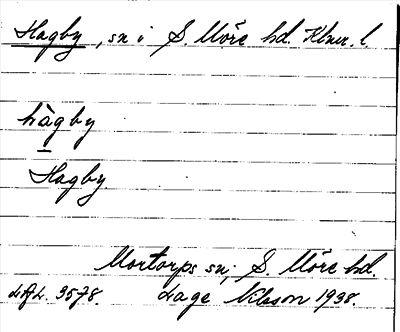 Hagby, sn i S. Möre hd. Klmr. l.
hàgby
Hagby.
Mortorps sn; S. Möre hd.
LAL. 3578. Lage Nilsson 1938.